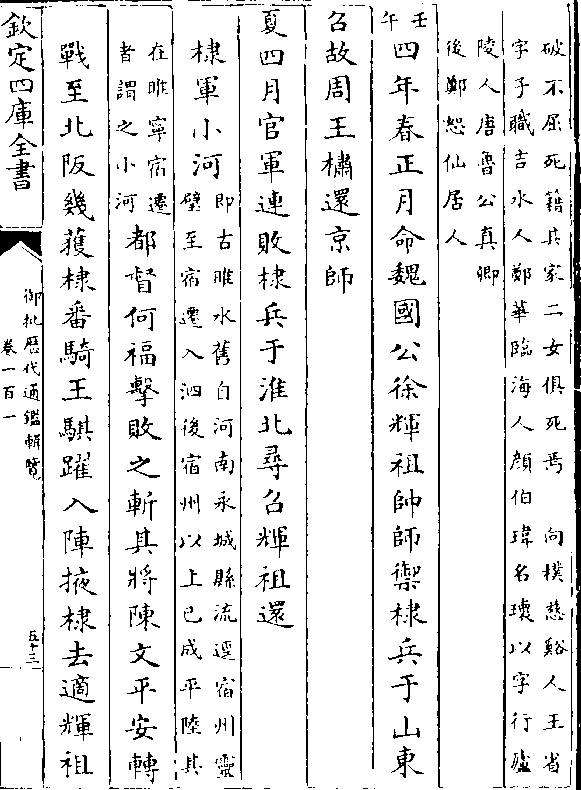 破不屈死籍其家二女俱死焉　向樸慈谿人王省
字子職吉水人鄭華臨海人顔伯瑋名瓌以字行廬
陵人唐魯公真卿
後鄭恕仙居人
壬午四年春正月命魏國公徐輝祖帥師禦棣兵于山東
召故周王橚還京師
夏四月官軍連敗棣兵于淮北尋召輝祖還
棣軍小河
即古睢水舊自河南永城縣流逕宿州靈
璧至宿遷入泗後宿州以上已成平陸其
在睢寧宿遷
者謂之小河
都督何福擊敗之斬其將陳文平安轉
戰至北阪幾獲棣番騎王騏躍入陣掖棣去適輝祖
欽定四庫全書
御批歷代通鑑輯覽
卷一百一
五十三